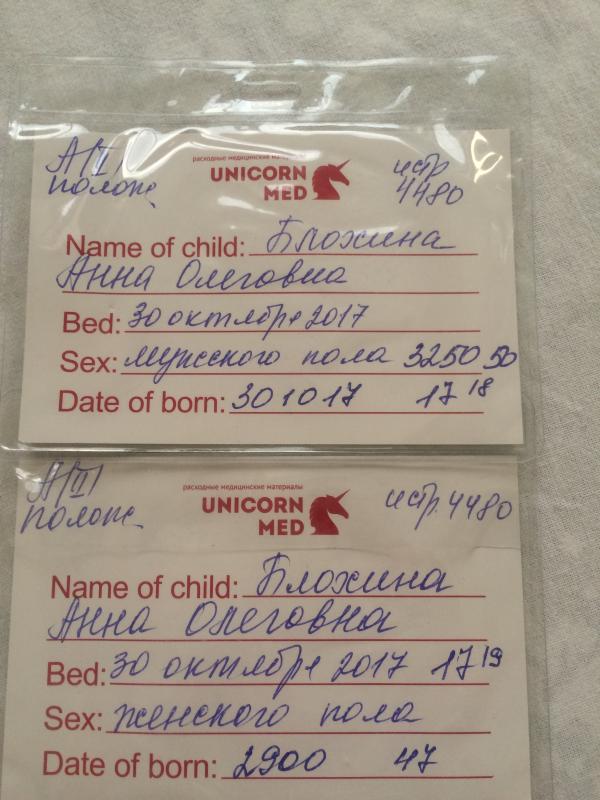 А(II) полож
расходные медицинские материалы
UNICORN MED
ист 4480
Name of child: Блохина
Анна Олеговна
Bed: 30 октября 2017
Sex: мужского пола 3250 50
Date of born: 30 10 17 17 18
А(II) полож
расходные медицинские материалы
UNICORN MED
ист. 4480
Name of child: Блохина
Анна Олеговна
Bed: 30 октября 2017 17 19
Sex: женского пола
Date of born: 2900 47